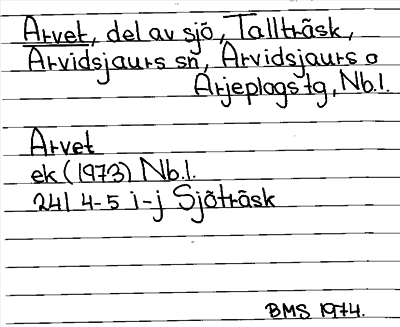 Arvet, del av sjö, Tallträsk,
Arvidsjaurs sn, Arvidsjaurs o
Arjeplogs tg, Nb.l.
Arvet
ek (1973) Nb.l.
24I 4-5 i-j Sjöträsk
BMS 1974.